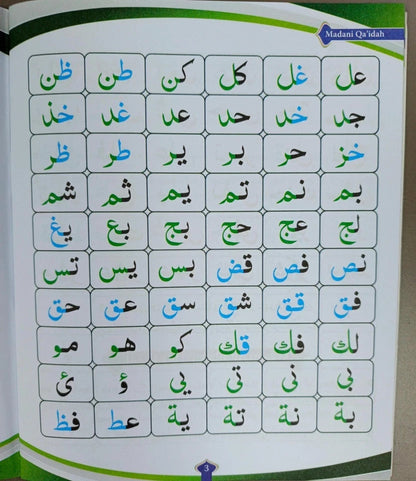 Madani Qa'idah
عل غل كل كن طن ظن
جد خد حد عد غد خذ
خز حر بر ير طر ظر
بم نم تم يم ثم شم
لج عج حج بج بع يغ
نص فص قض بس يس تس
فق قق شق سق عق حق
لك فك قك كو هو مو
بى نى تى يى ؤ ئ
بة نة تة ية عط فظ
3